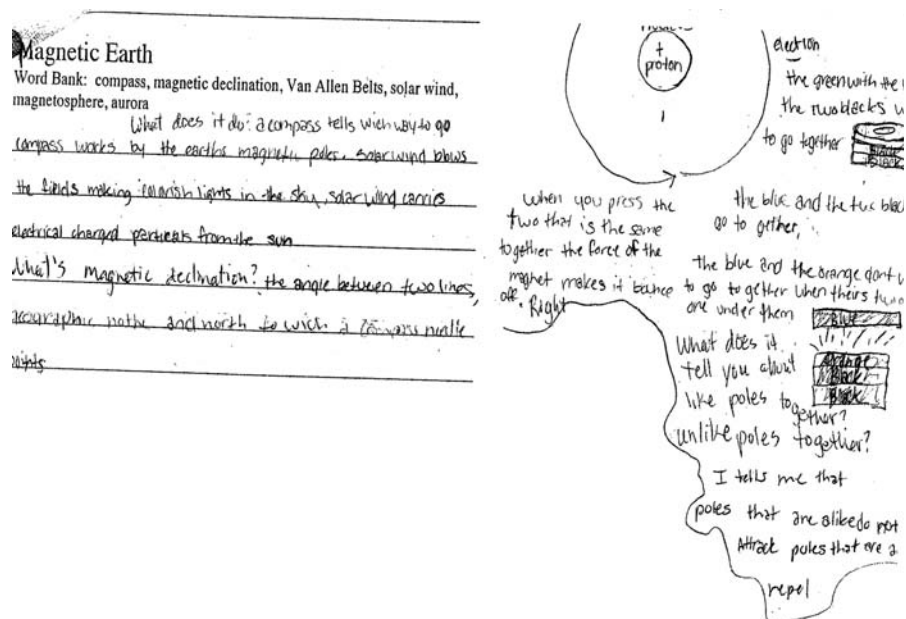 Magnetic Earth
Word Bank: compass, magnetic declination, Van Allen Belts, solar wind,
magnetosphere, aurora
What does it do: a compass tells wich way to go
compass works by the earths magnetic poles. solar wind blows
the fields making colorish lights in the sky, solar wind carries
electrical charged from the sun
What's Magnetic declination? the angle between two lines,
and north to wich a
+
proton
election
the green with the
the two blacks
to go together
Black
Black
when you press the
two that is the same
together the force of the
magnet makes it bounce
off. Right
the blue and the two black
go to gether,
the blue and the orange dont
to go together when theirs two
one under them
Blue
Orange
Black
Black
What does it
tell you about
like poles together?
unlike poles together?
I tells me that
poles that are alike do not
Attrack poles that are a
repel